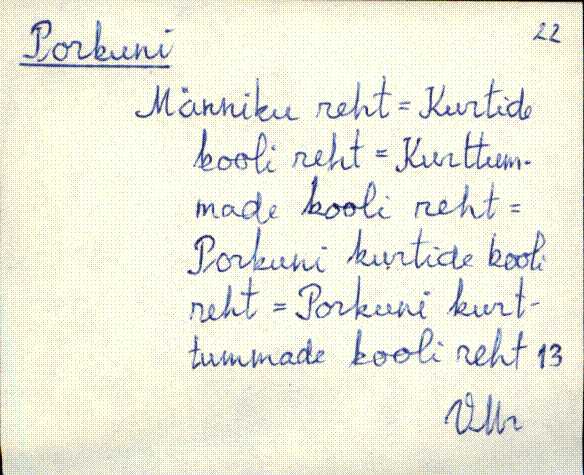 22
Porkuni
Männiku reht = Kurtide
kooli reht = Kurttum-
made kooli reht =
Porkuni kurtide kooli
reht = Porkuni kurt-
tummade kooli reht 13
VMr